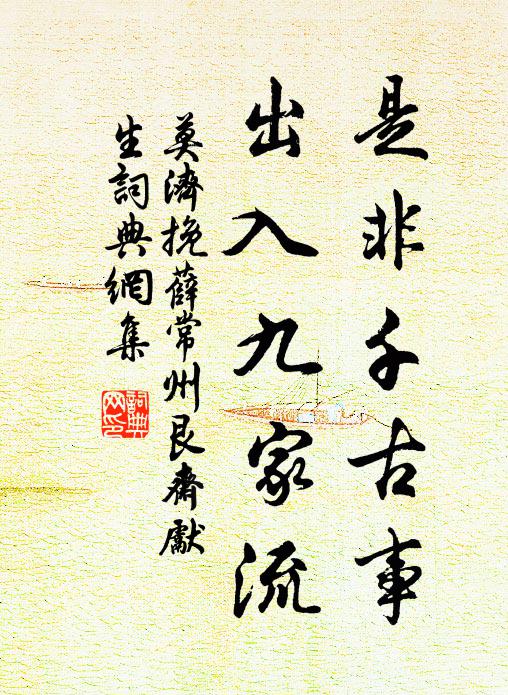 是非千古事
出入九家流
莫濟挽薛常州艮齋獻
生詞典網集
詞典網印